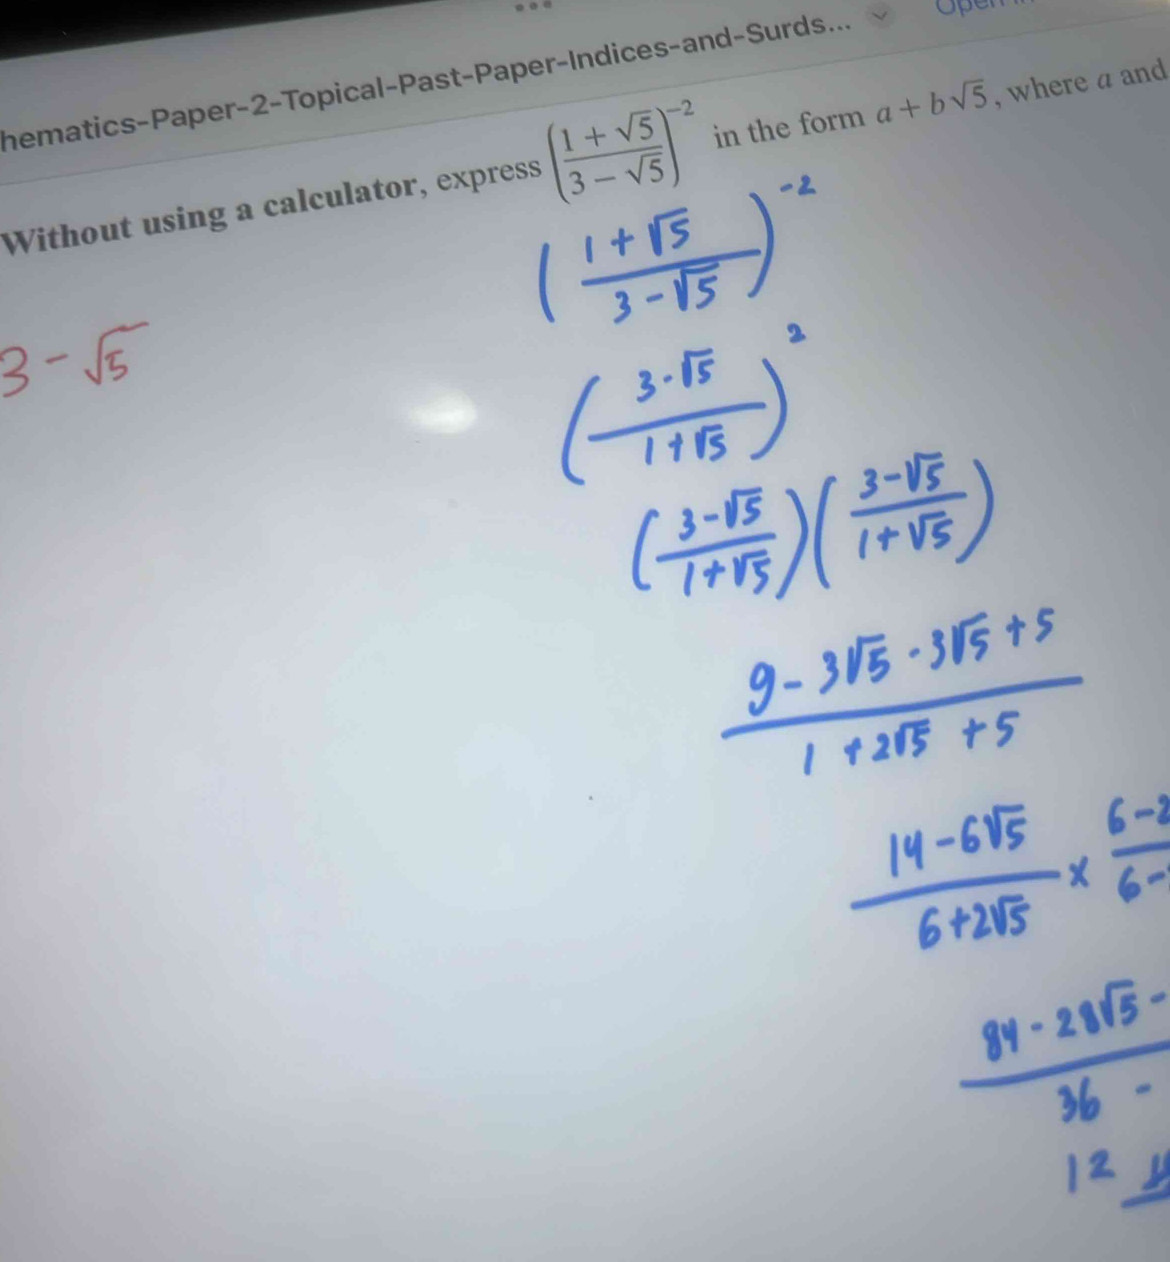 hematics-Paper-2-Topical-Past-Paper-Indices-and-Surds...
Without using a calculator, express ((1 + √5)/(3 − √5))^−2 in the form a + b√5, where a and
((1 + √5)/(3 − √5))^−2
3 − √5
((3 - √5)/(1 + √5))^2
((3 − √5)/(1 + √5))((3 − √5)/(1 + √5))
(9 − 3√5 - 3√5 + 5)/(1 + 2√5 + 5)
(14 − 6√5)/(6 + 2√5) × (6 − 2)/(6 −
(84 − 28√5 −)/(36 −
12